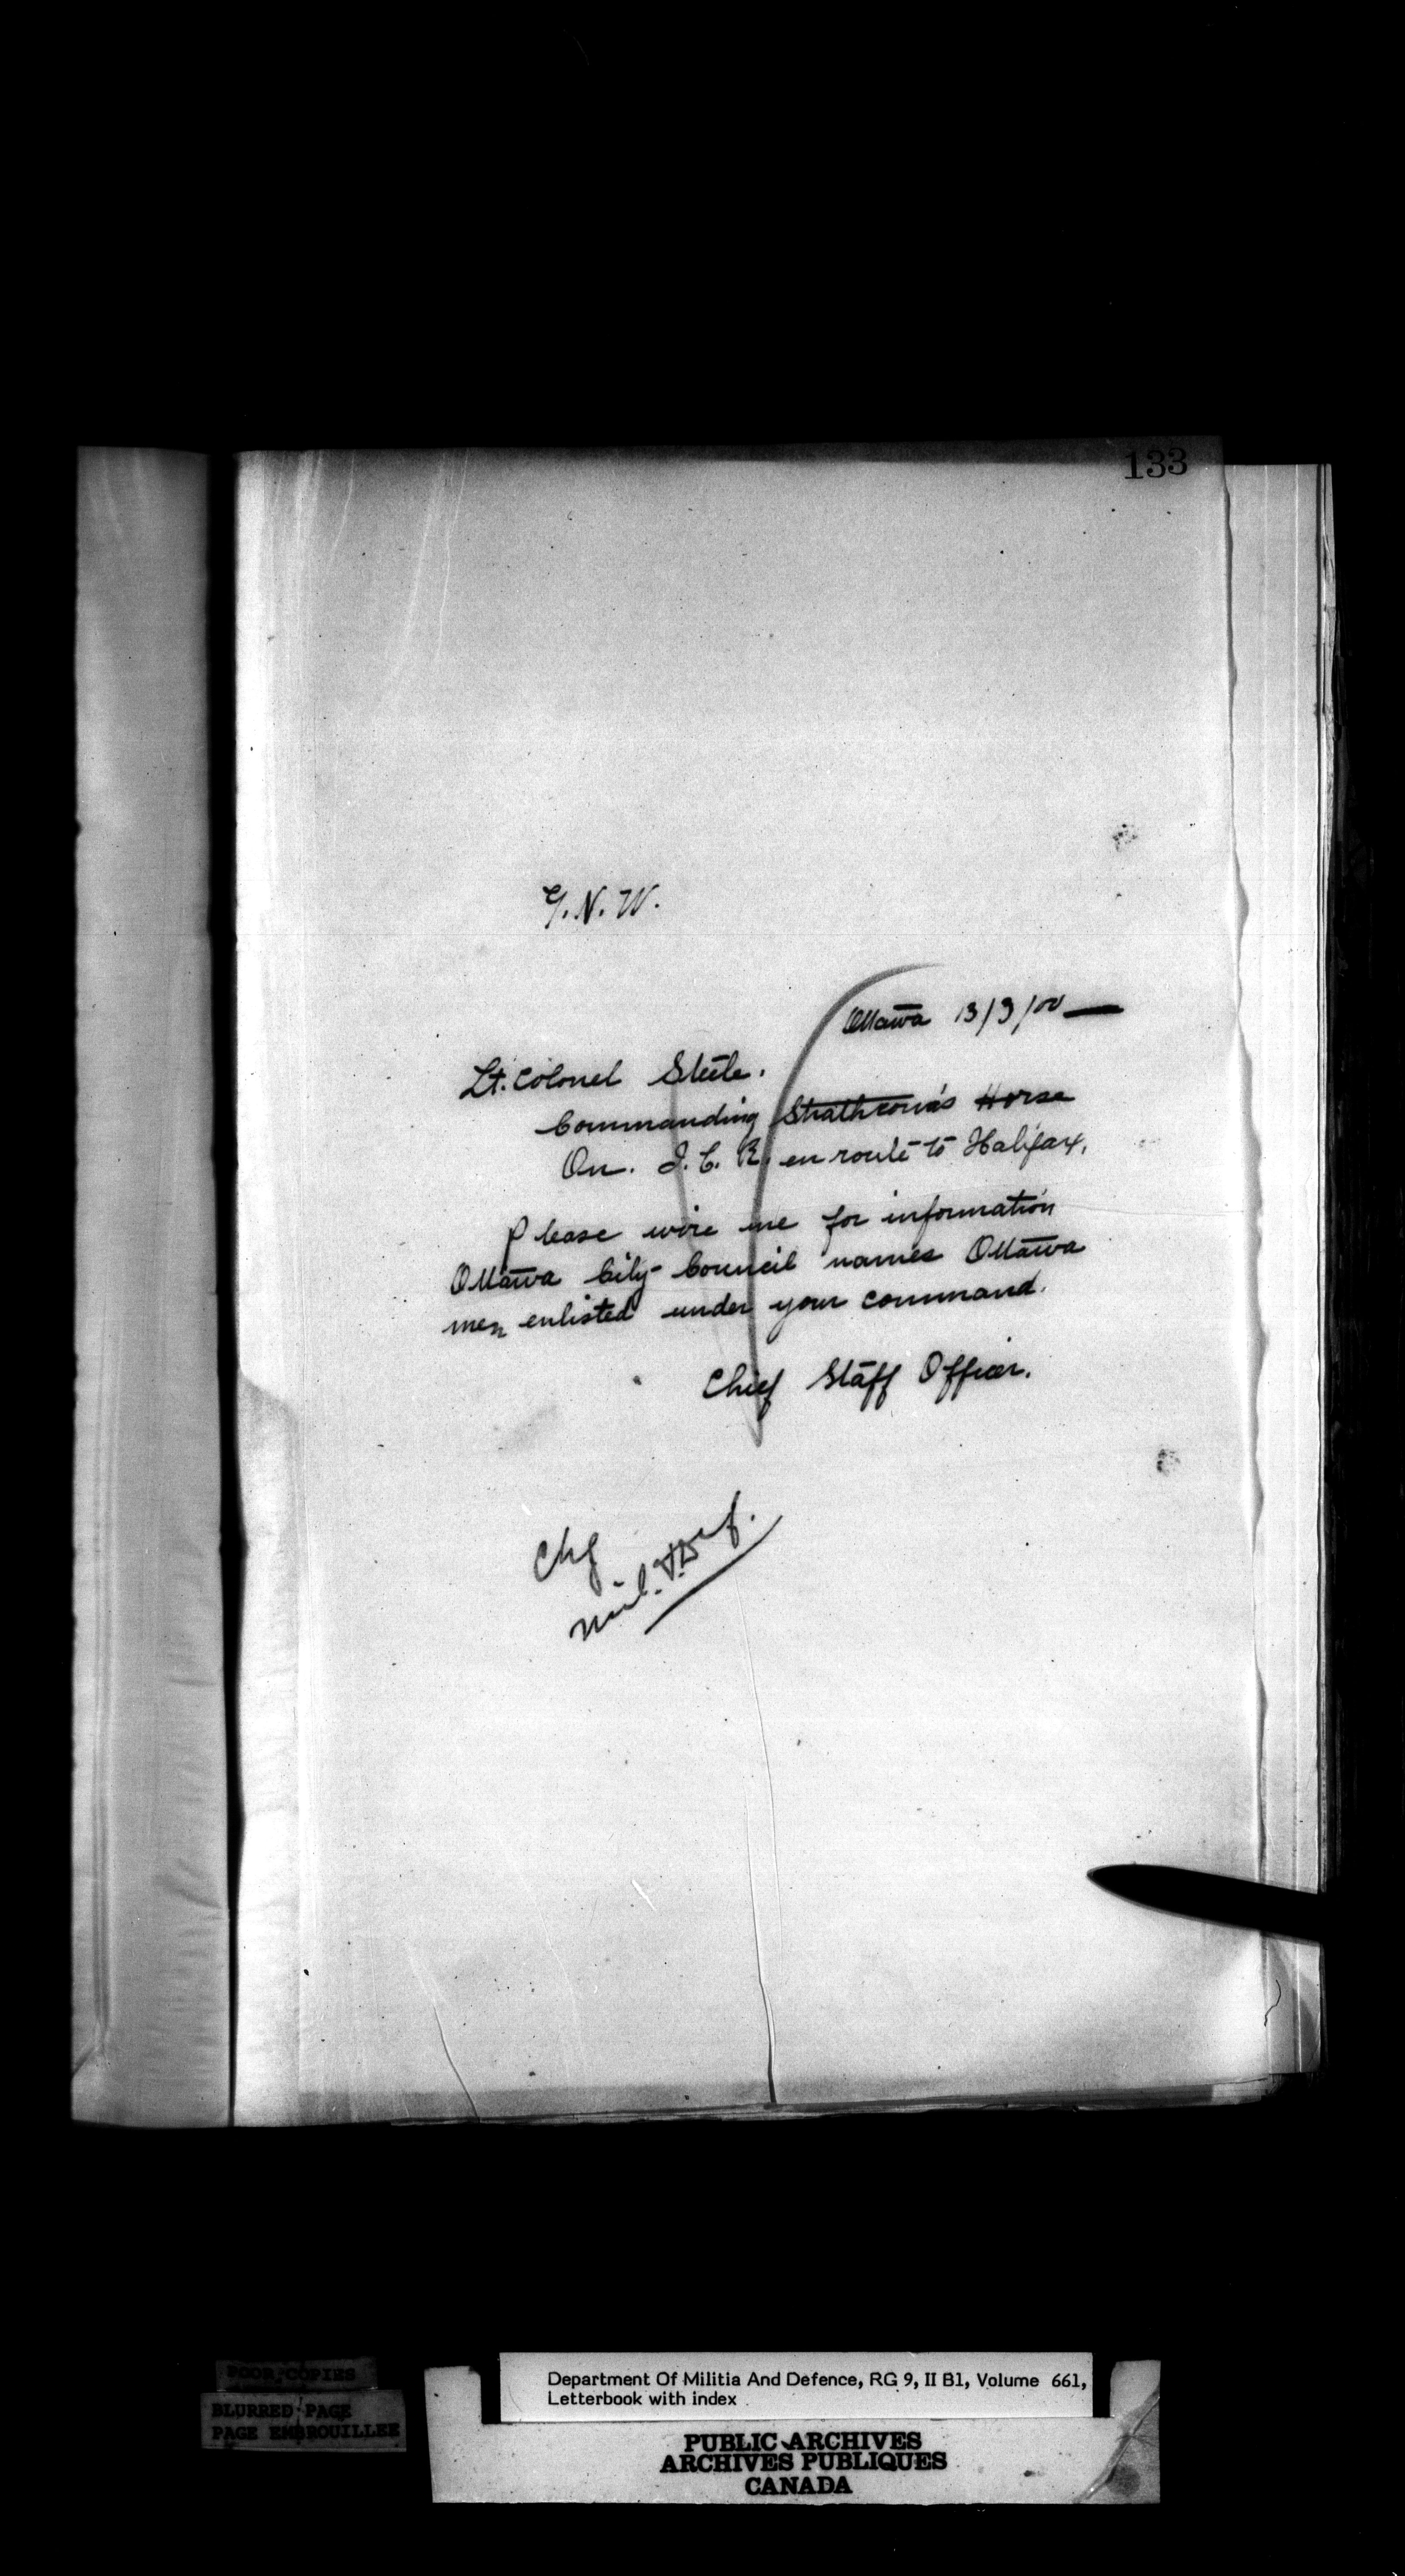 133
G. N. W.
Ottawa 13/3/00 —
Lt. Colonel Steele.
Commanding Strathcona's Horse
On. I. C. R. en route to Halifax.
Please wire me for information
Ottawa City Council names Ottawa
men enlisted under your command.
Chief Staff Officer.
Chg
Mil. & Def.
POOR COPIES
BLURRED PAGE
PAGE EMBROUILLEE
Department Of Militia And Defence, RG 9, II B1, Volume 661,
Letterbook with index
PUBLIC ARCHIVES
ARCHIVES PUBLIQUES
CANADA